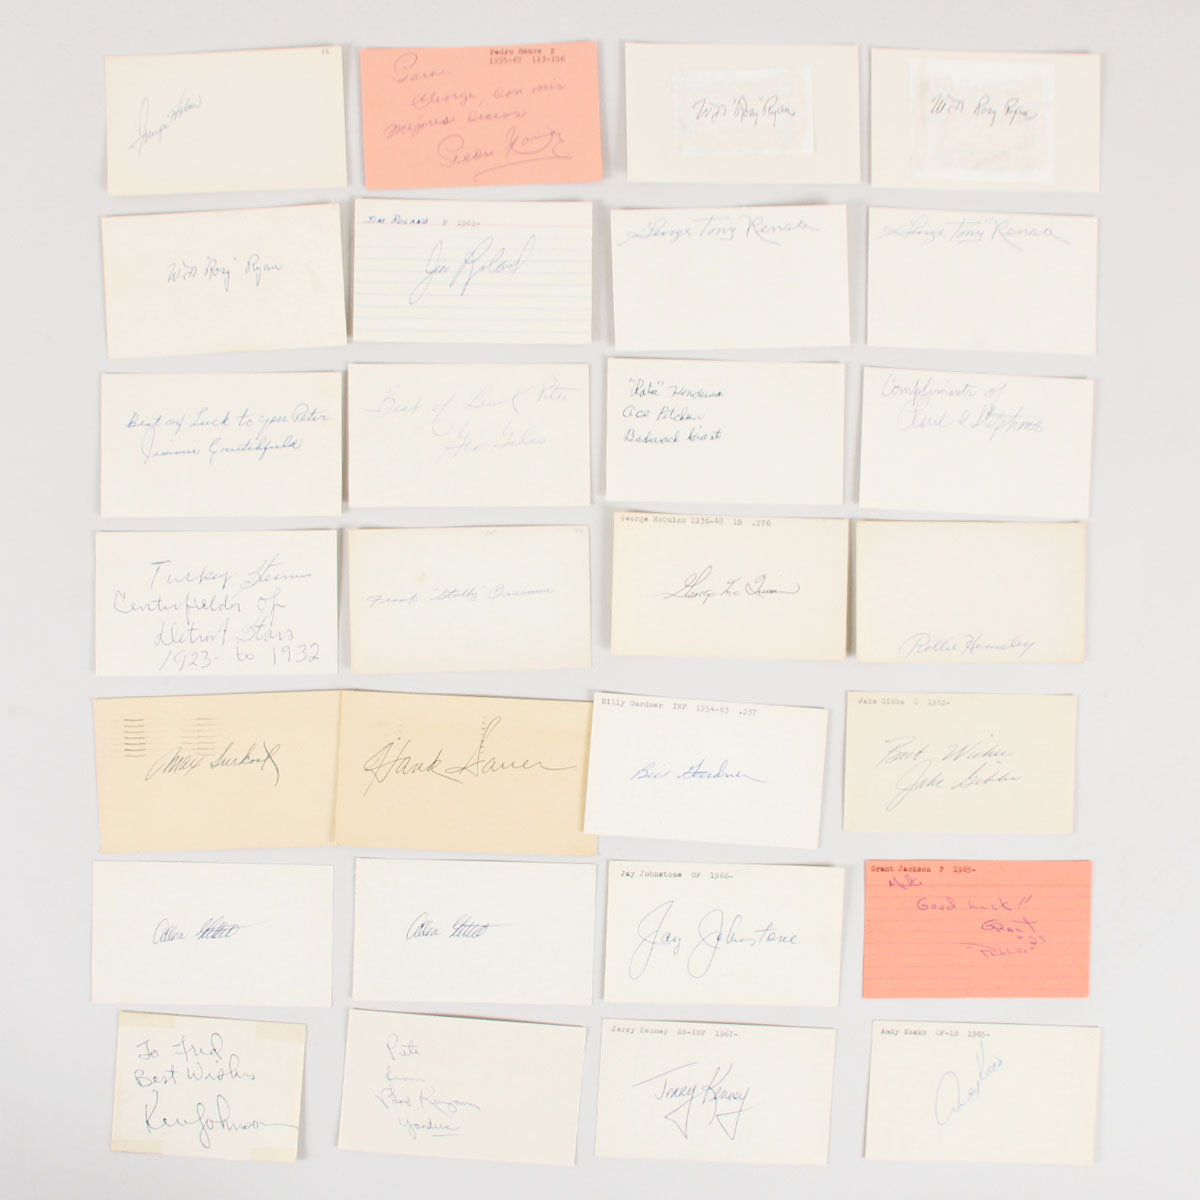 George
Pedro Ramos P
1955-67 113-156
Para.
George, con mis
mejores deseos
Pedro Ramos
Wilf "Rosy" Ryan
Wilf Rosy Ryan
Wilf "Rosy" Ryan
Jim Roland P 1962-
Jim Roland
George Tony Rensa
George "Tony" Rensa
Best of Luck to you Peter
Jimmie Crutchfield
Best of Luck Pete
Geo Giles
"Rats" Henderson
Ace Pitcher
Compliments of
Paul C Stephens
Turkey Stearns
Centerfielder of
Detroit Stars
1923- to 1932
Frank "Stubby" Overmire
George McQuinn 1936-48 1B .276
George Mc Quinn
Rollie Hemsley
Max Surkont
Hank Sauer
Billy Gardner INF 1954-63 .237
Bill Gardner
Jake Gibbs C 1962-
Best Wishes
Jake Gibbs
Allen Gettel
Allen Gettel
Jay Johnstone OF 1966-
Jay Johnstone
Grant Jackson P 1965-
Good Luck!!
Grant
To Fred
Best Wishes
Ken Johnson
Pete
from
Jerry Kenney SS-INF 1967-
Jerry Kenney
Andy Kosko OF-1B 1965-
Andy Kosco